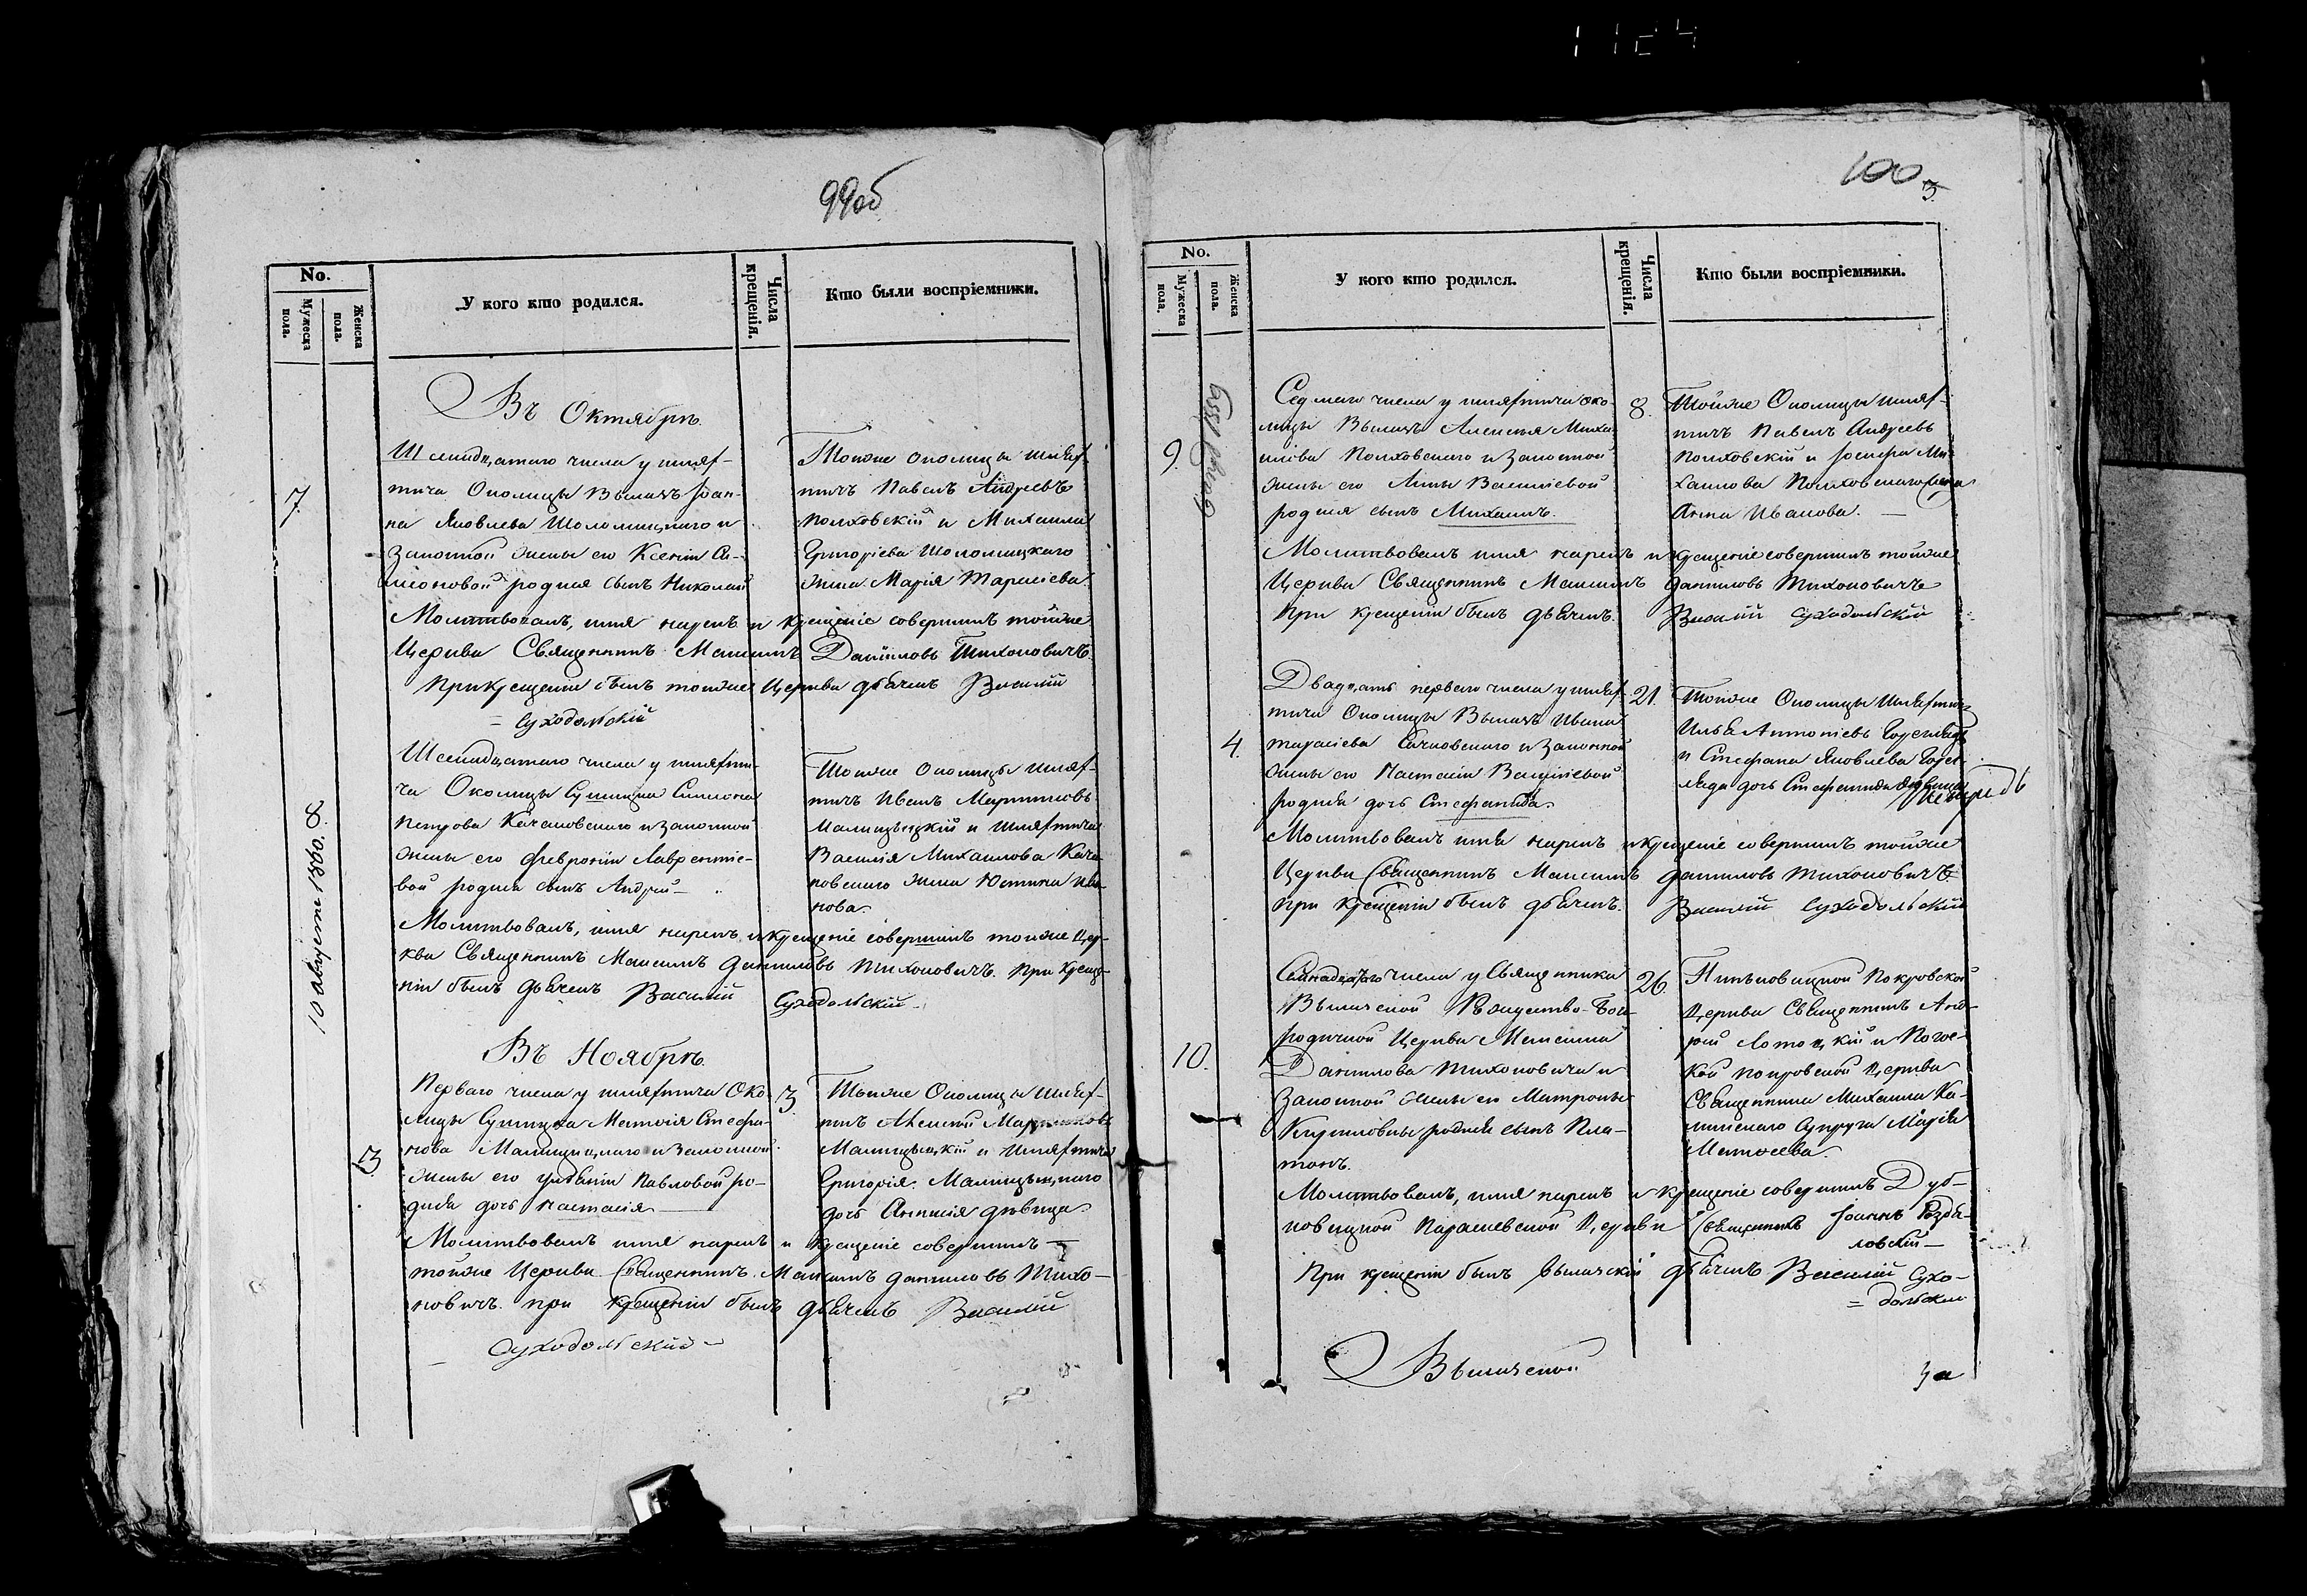 99об
No.
Мужеска пола.
Женска пола.
У кого кто родился.
Числа крещенія.
Кто были воспріемники.
Въ Октябрѣ.
7.
числа у шлях-
тича Околицы Вылазъ Іоан-
на Яковлева Шоломицкаго и
Законной жены его Ксеніи Си-
меоновой родился сынъ Николай
Тойже околицы шлях-
тичъ Павелъ Андреевъ
Полховскій и Михаила
Григоріева Шоломицкаго
жена Марія Тарасіева.
Молитвовалъ, имя нарекъ и крещеніе совершилъ тойже
Церкви Священникъ Максимъ Даниловъ Тихоновичъ.
При крещеніи былъ тойже Церкви дьячекъ Василій
Суходольскій
10 августа 1860.
8.
числа у шляхти-
ча Околицы Сушицка Симиона
Петрова Качановскаго и законной
жены его Февроніи Лаврентіе-
вой родился сынъ Андрей
Тойже Околицы шлях-
тичъ Иванъ Мартиновъ
Малищыцкій и Шляхтича
Василія Михаилова Кача-
новскаго жена Юстина Ива-
нова.
Молитвовалъ, имя нарекъ и крещеніе совершилъ тойже Цер-
кви Священникъ Максимъ Даниловъ Тихоновичъ. При креще-
ніи былъ дьячекъ Василій Суходольскій
Въ Ноябрѣ.
3.
Перваго числа у шляхтича Око-
лицы Сушицка Матѳія Стефа-
нова Малищицкаго и Законной
жены его Уліяніи Павловой ро-
дилась дочь Настасія
3.
Тойже Околицы Шлях-
тичъ Алексій Мартиновъ
Малищыцкій и Шляхтича
Григорія Малищыцкаго
дочь Анисія дѣвица
Молитвовалъ имя нарекъ и крещеніе совершилъ
тойже Церкви Священникъ Максимъ Даниловъ Тихо-
новичъ. при крещеніи былъ дьячекъ Василій
Суходольскій
100
3.
No.
Мужеска пола.
Женска пола.
У кого кто родился.
Числа крещенія.
Кто были воспріемники.
9.
Седмаго числа у шляхтича око-
лицы Вылазъ Алексѣя Миха-
илова Полховскаго и Законной
жены его Анны Василіевой
родился сынъ Михаилъ.
8.
Тойже Околицы шлях-
тичъ Павелъ Андреевъ
Полховскій и Іосифа Ми-
хаилова Полховскаго жена
Анна Иванова.
Молитвовалъ имя нарекъ и крещеніе совершилъ тойже
Церкви Священникъ Максимъ Даниловъ Тихоновичъ
При крещеніи былъ дьячекъ Василій Суходольскій
4.
Двадцать перваго числа у шлях-
тича Околицы Вылазъ Ивана
Тарасіева Сачковскаго и Законной
жены его Настасіи Василіевой
родилась дочь Стефанида.
21.
Тойже Околицы Шляхтичъ
Илья Антоніевъ
и Стефана Яковлева
дочь Стефанида дѣвица
Молитвовалъ имя нарекъ и крещеніе совершилъ тойже
Церкви Священникъ Максимъ Даниловъ Тихоновичъ.
при крещеніи былъ дьячекъ. Василій Суходольскій
10.
числа у Священника
Вылазской Рождество-Бого-
родичной Церкви Максима
Данилова Тихоновича и
Законной жены его Матроны
Кириловны родился сынъ Пла-
тонъ.
26.
Покровской
Церкви Священникъ Анд-
рей Лотоцкій и Погос-
кой покровской Церкви
Священника Михаила Ка-
минскаго Супруга Марія
Матѳеева.
Молитвовалъ, имя нарекъ и крещеніе совершилъ Дуб-
новицкой Параскевской Церкви Священникъ Іоаннъ Роздя-
ловскій
При крещеніи былъ вылазскій дьячекъ Василій Сухо-
дольскій
Вылазской
За